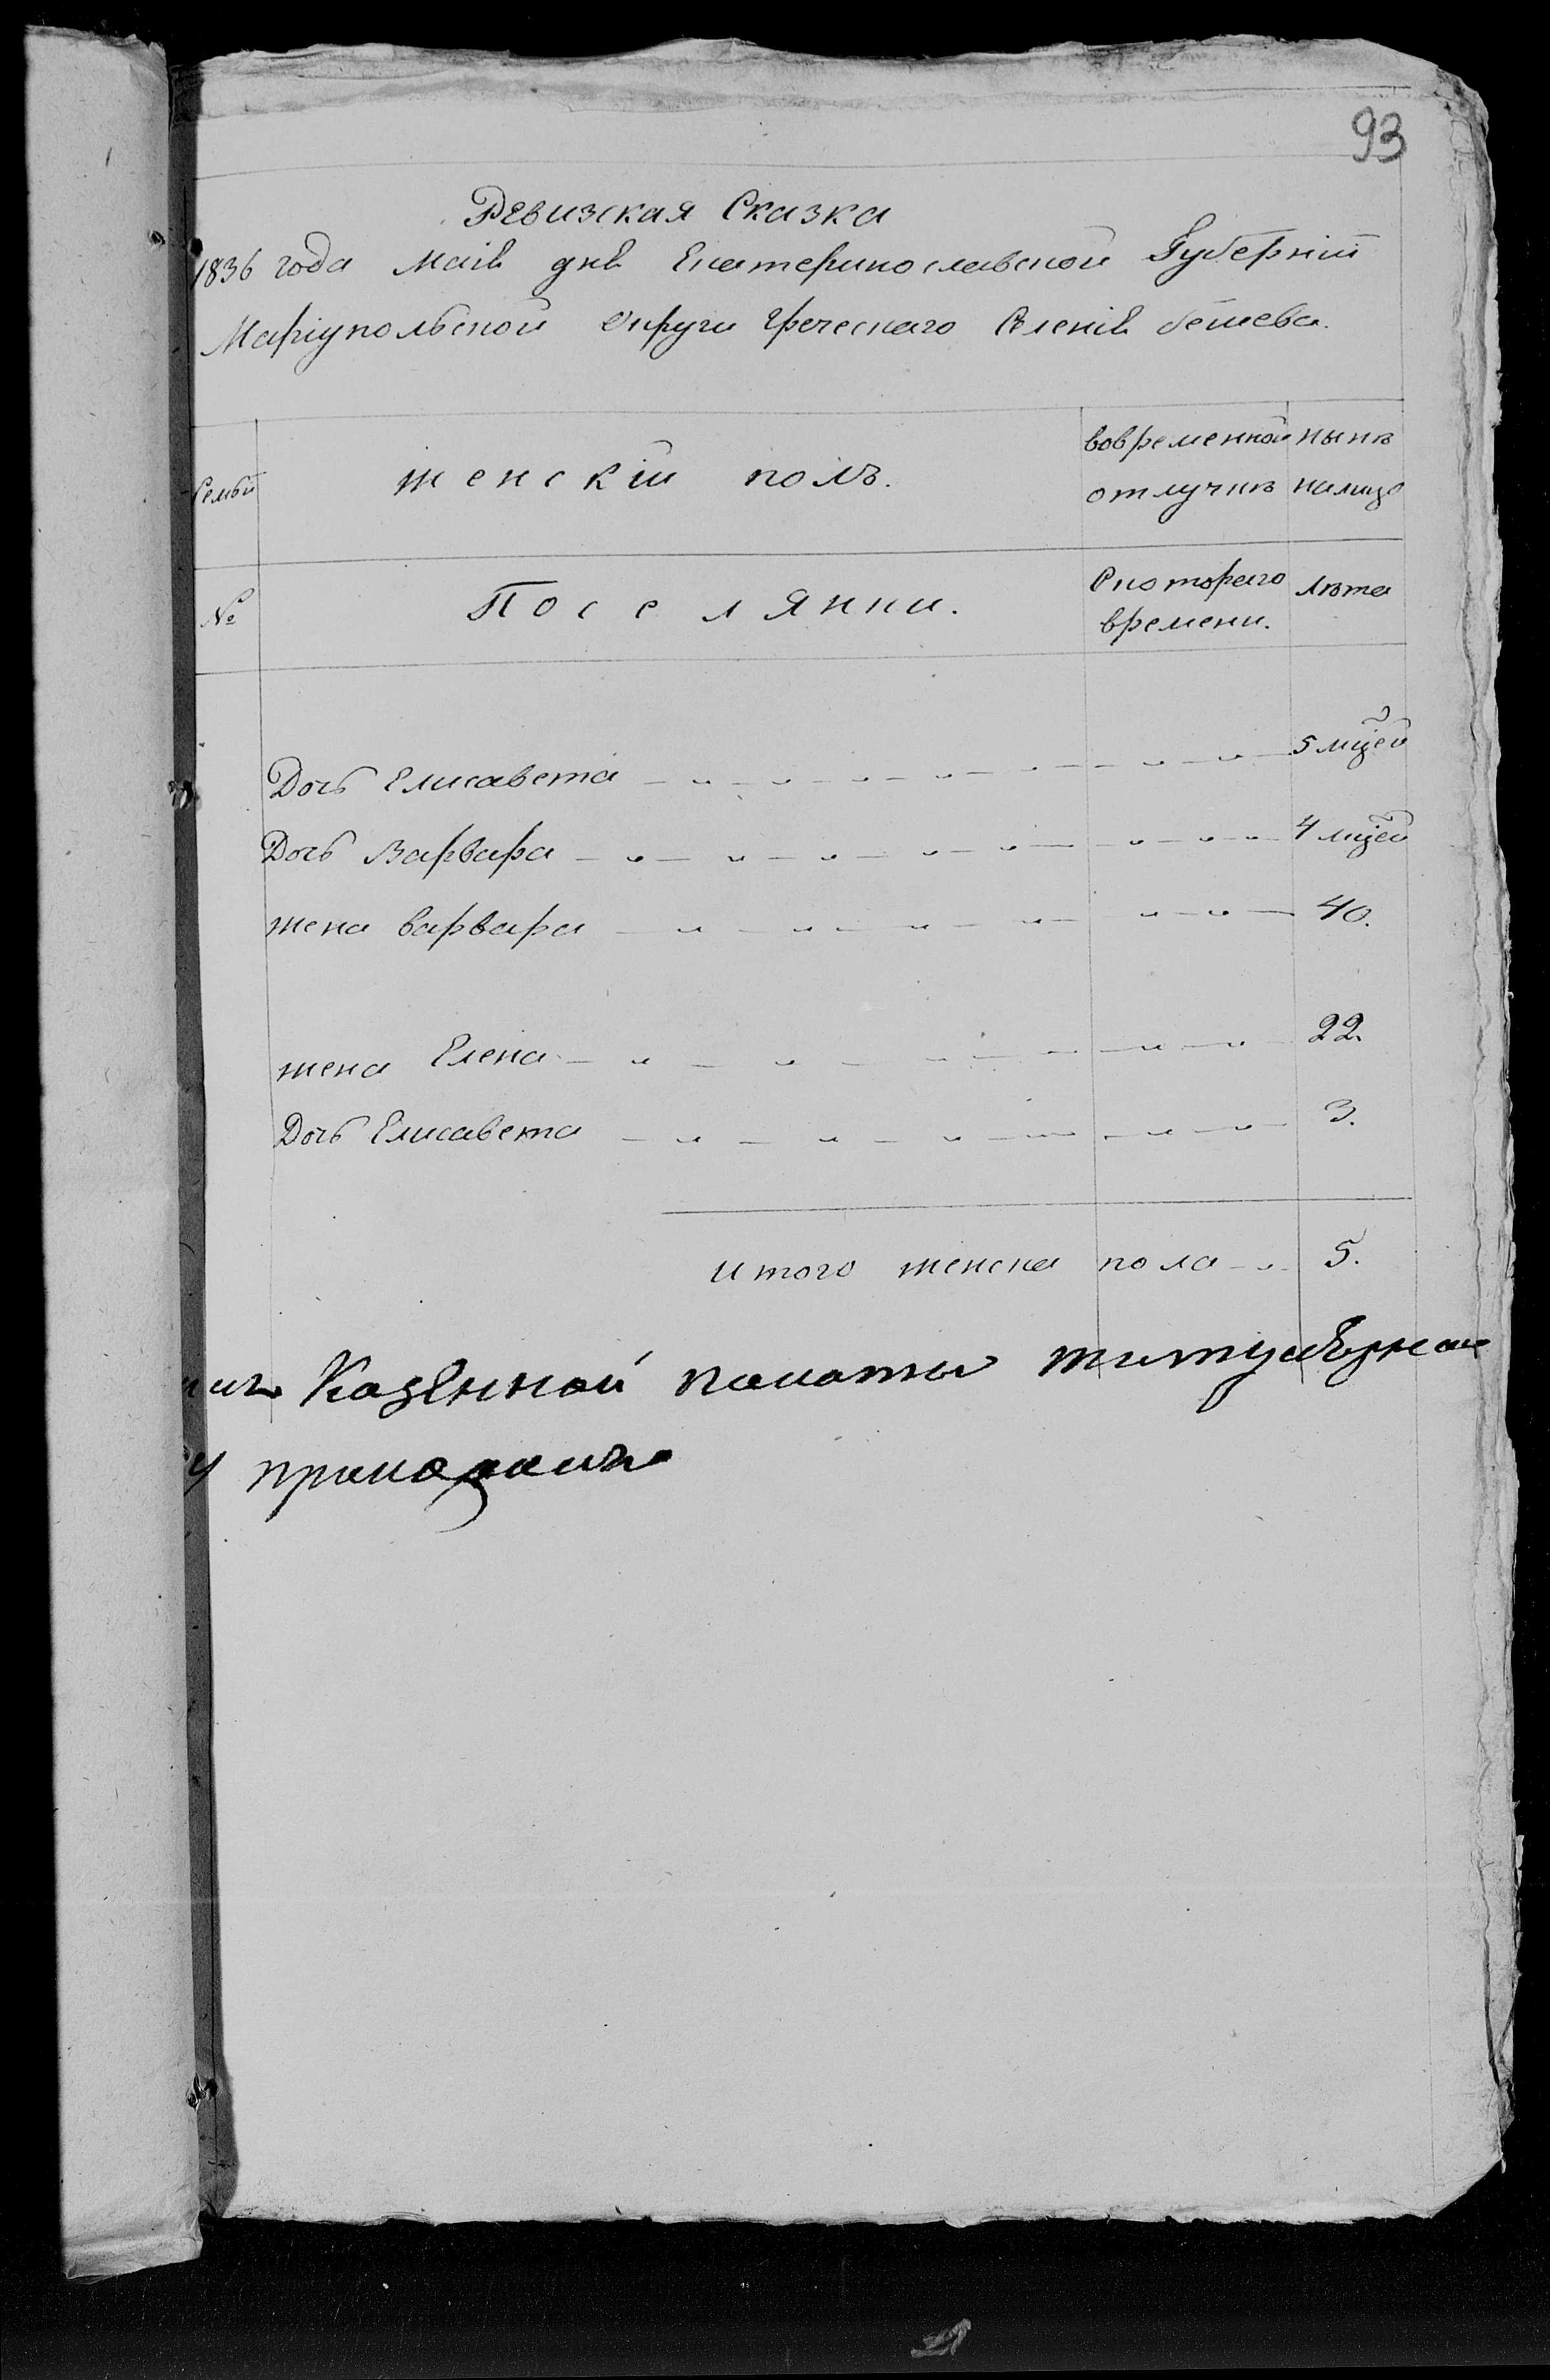 93
Ревизская Сказка
1836 года Маія дня Екатеринославской Губерніи
Маріупольской округи Греческаго Селенія бешева.
Семьи
женскій полъ.
вовременной отлучкѣ
нынѣ налицо
№
Поселянки.
Скотораго времени.
Лѣта
Дочь Елисавета 5 мцей
Дочь Варвара 4 мцей
жена варвара 40.
жена Елена 22.
Дочь Елисавета 3.
итого женска пола 5.
Казенной палаты титулярнаи